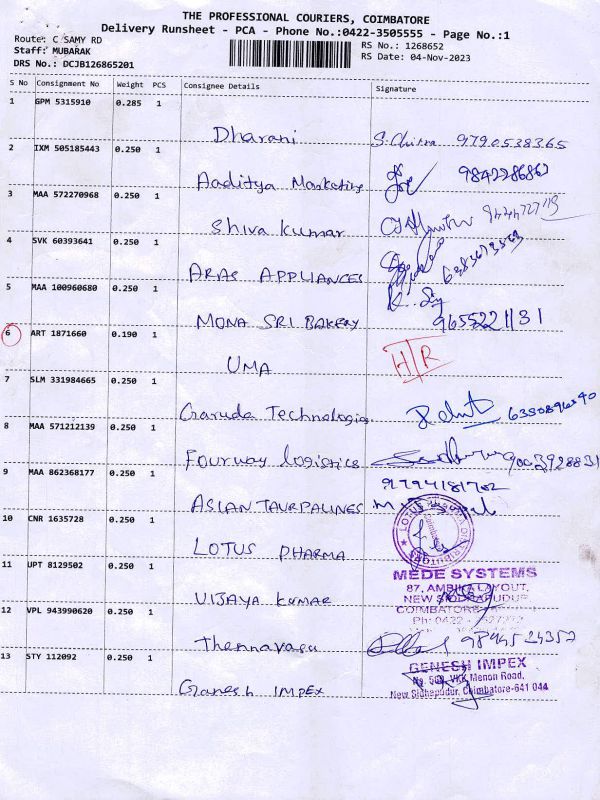 THE PROFESSIONAL COURIERS, COIMBATORE
Delivery Runsheet - PCA - Phone No.:0422-3505555 - Page No.:1
Route: C SAMY RD
RS No.: 1268652
Staff: MUBARAK
RS Date: 04-Nov-2023
DRS No.: DCJB126865201
S No Consignment No Weight PCS Consignee Details Signature
1 GPM 5315910 0.285 1
Dharani S. Chitra 9790538365
2 IXM 505185443 0.250 1
Aaditya Marketing 9842286862
3 MAA 572270968 0.250 1
Shiva kumar
4 SVK 60393641 0.250 1
ARAS APPLIANCES 6383673569
5 MAA 100960680 0.250 1
MONA SRI BAKERY 9655221131
6 ART 1871660 0.190 1
UMA H/R
7 SLM 331984665 0.250 1
Garuda Technologies
8 MAA 571212139 0.250 1
Fourway logistics 9003928831
9 MAA 862368177 0.250 1
9794181702
ASIAN TAURPALINES
10 CNR 1635728 0.250 1
LOTUS PHARMA
LOTUS
11 UPT 8129502 0.250 1
MEDE SYSTEMS
87, AMBIKA LAYOUT,
NEW SIDDHAPUDUR,
VIJAYA KUMAR COIMBATORE
Ph: 0422 -
12 VPL 943990620 0.250 1
Thennavasu
13 STY 112092 0.250 1
GENESH IMPEX
VKK Menon Road,
Ganesh IMPEX New Sidhapudur, Coimbatore-641 044